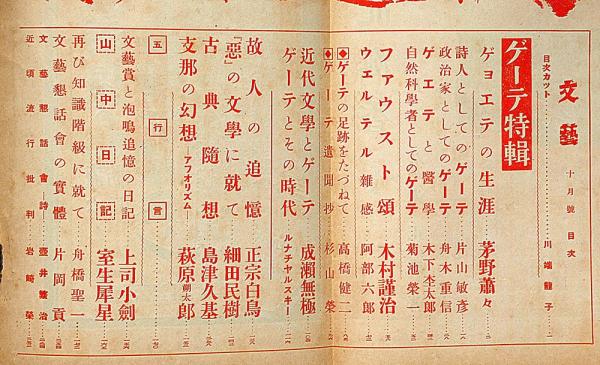 文藝 十月號 目次
目次カット 川端龍子
ゲーテ特輯
ゲョエテの生涯 茅野蕭々
詩人としてのゲーテ 片山敏彦
政治家としてのゲーテ 舟木重信
ゲエテと醫學 木下杢太郎
自然科學者としてのゲーテ 菊池榮一
ファウスト頌 木村謹治
ウェルテル雜感 阿部六郎
ゲーテの足跡をたづねて 高橋健二
ゲーテ遺聞抄 杉山榮
近代文學とゲーテ 成瀬無極
ゲーテとその時代 ルナチヤルスキー
故人の追憶 正宗白鳥
「惡」の文學に就て 細田民樹
古典隨想 島津久基
支那の幻想 アフオリズム 萩原朔太郎
五行言
文藝賞と泡鳴追憶の日記 上司小劍
山中日記 室生犀星
再び知識階級に就て 舟橋聖一
文藝懇話會の實體 片岡貢
文藝懇話會詩 壺井繁治
近頃流行批判 岩崎榮